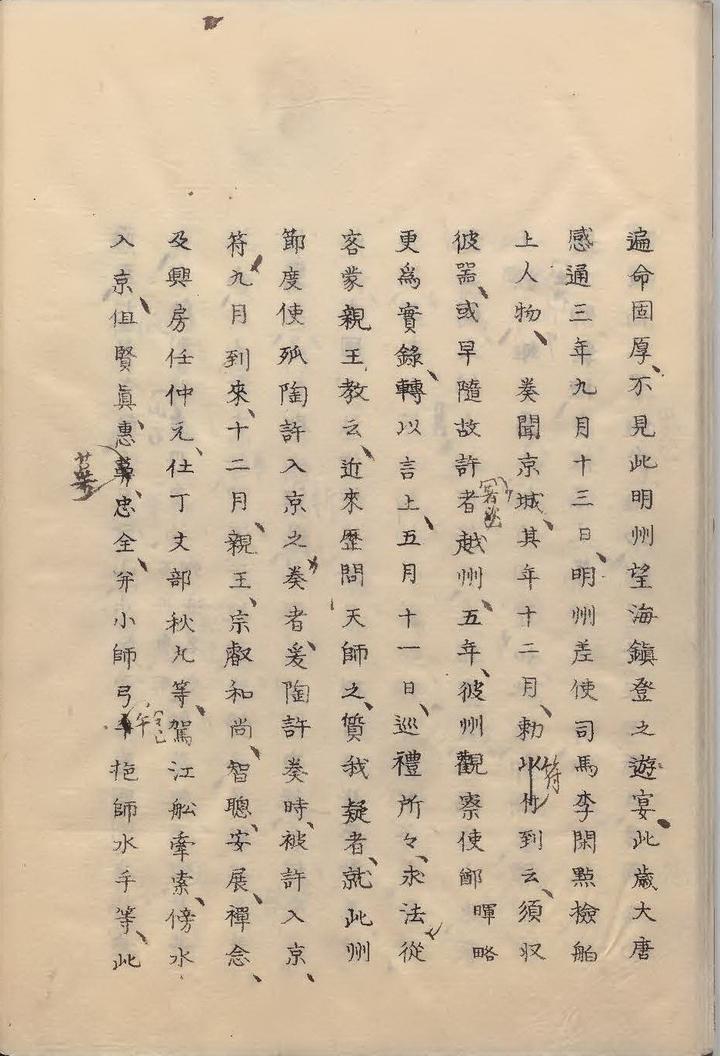 遍命固厚不見此明州望海鎮登之遊宴此歳大唐
感通三年九月十三日明州差使司馬李閑點檢舶
上人物　奏聞京城其年十二月勅符到云須収
彼器或早隨故許者越州五年彼州觀察使鄮暉略
更爲實錄轉以言上五月十一日巡禮所々求法従
客蒙親王教云近來歴問天師之質我疑者就此州
節度使㼌陶許入京之奏者爰陶許奏時被許入京
符九月到來十二月親王宗叡和尚智聰安展禪念
及興房任仲元仕丁丈部秋丸等駕江舩牽索傍水
入京伹賢眞惠蕚忠全弁小師弓手柂師水手等此